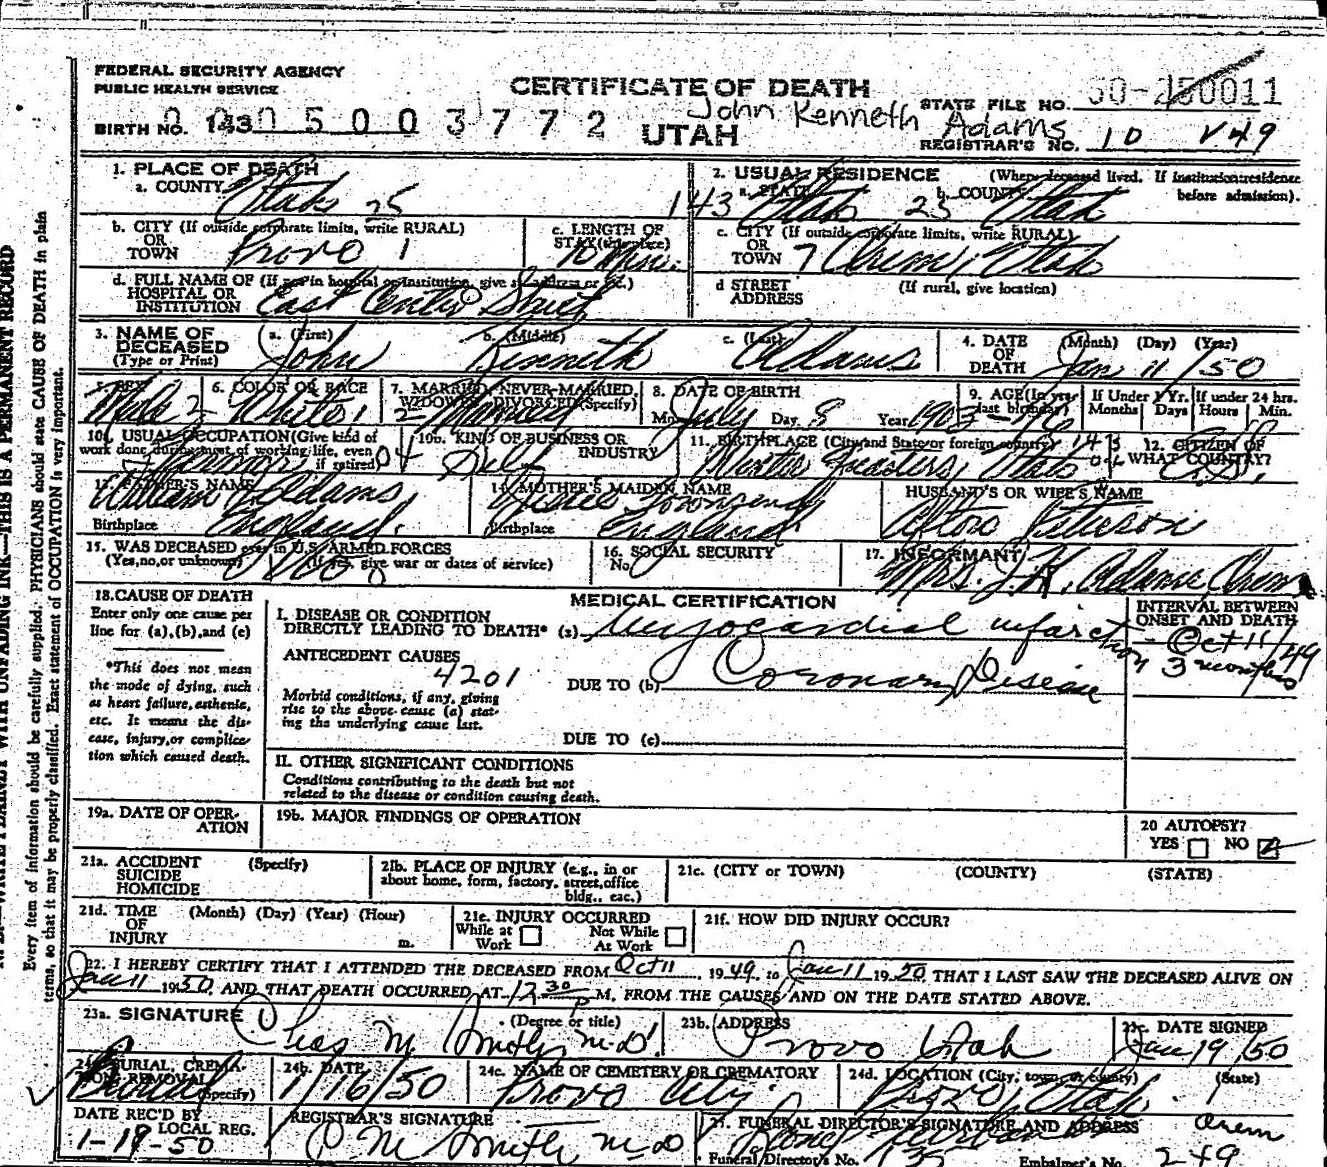 FEDERAL SECURITY AGENCY
PUBLIC HEALTH SERVICE
CERTIFICATE OF DEATH
UTAH
John Kenneth Adams
STATE FILE NO. 50-250011
BIRTH NO. 143 0005003772
REGISTRAR'S NO. 10 V49
1. PLACE OF DEATH
a. COUNTY Utah 25
2. USUAL RESIDENCE (Where deceased lived. If institution: residence before admission).
143 a. STATE Utah 25 b. COUNTY Utah
b. CITY (If outside corporate limits, write RURAL) OR TOWN Provo 1
c. LENGTH OF STAY (this place) 10 Min.
c. CITY (If outside corporate limits, write RURAL) OR TOWN 7 Orem, Utah
d. FULL NAME OF (If not in hospital or institution, give st. address or loc.) HOSPITAL OR INSTITUTION East Center Street
d STREET ADDRESS (If rural, give location)
3. NAME OF DECEASED (Type or Print)
a. (First) John b. (Middle) Kenneth c. (Last) Adams
4. DATE OF DEATH (Month) (Day) (Year) Jan 11/50
5. SEX Male 2
6. COLOR OR RACE White 1
7. MARRIED, NEVER MARRIED, WIDOWED, DIVORCED (Specify) 2 Married
8. DATE OF BIRTH
Mo. July Day 8 Year 1903
9. AGE (In yrs. last birthday) 46
If Under 1 Yr. Months Days
If under 24 hrs. Hours Min.
10a. USUAL OCCUPATION (Give kind of work done during most of working life, even if retired) Farmer 04
10b. KIND OF BUSINESS OR INDUSTRY Self
11. BIRTHPLACE (City and State or foreign country) Utah 143
12. CITIZEN OF WHAT COUNTRY?
13. FATHER'S NAME William Adams
Birthplace England.
14. MOTHER'S MAIDEN NAME Townsend
Birthplace England
HUSBAND'S OR WIFE'S NAME
15. WAS DECEASED ever in U.S. ARMED FORCES (Yes, no, or unknown) (If yes, give war or dates of service) No
16. SOCIAL SECURITY No.
17. INFORMANT Mrs. J.K. Adams Orem
18. CAUSE OF DEATH
Enter only one cause per line for (a), (b), and (c)
*This does not mean the mode of dying, such as heart failure, asthenia, etc. It means the disease, injury, or complication which caused death.
MEDICAL CERTIFICATION
INTERVAL BETWEEN ONSET AND DEATH
I. DISEASE OR CONDITION DIRECTLY LEADING TO DEATH* (a) Myocardial infarction - Oct 11/49
3 months
ANTECEDENT CAUSES
4201
Morbid conditions, if any, giving rise to the above cause (a) stating the underlying cause last.
DUE TO (b) Coronary Disease
DUE TO (c)
II. OTHER SIGNIFICANT CONDITIONS
Conditions contributing to the death but not related to the disease or condition causing death.
19a. DATE OF OPERATION
19b. MAJOR FINDINGS OF OPERATION
20 AUTOPSY?
YES NO
21a. ACCIDENT SUICIDE HOMICIDE (Specify)
21b. PLACE OF INJURY (e.g., in or about home, form, factory, street, office bldg., eac.)
21c. (CITY or TOWN) (COUNTY) (STATE)
21d. TIME OF INJURY (Month) (Day) (Year) (Hour) m.
21e. INJURY OCCURRED
While at Work Not While At Work
21f. HOW DID INJURY OCCUR?
22. I HEREBY CERTIFY THAT I ATTENDED THE DECEASED FROM Oct 11 1949, to Jan 11 1950, THAT I LAST SAW THE DECEASED ALIVE ON
Jan 11 1950, AND THAT DEATH OCCURRED AT 12 30 P M. FROM THE CAUSES AND ON THE DATE STATED ABOVE.
23a. SIGNATURE (Degree or title) Chas M Smith, M.D.
23b. ADDRESS Provo Utah
23c. DATE SIGNED Jan 19/50
24a. BURIAL, CREMATION, REMOVAL (Specify) Burial
24b. DATE 1/16/50
24c. NAME OF CEMETERY OR CREMATORY Provo City
24d. LOCATION (City, town, or county) (State) Provo, Utah
DATE REC'D BY LOCAL REG. 1-19-50
REGISTRAR'S SIGNATURE C M Smith M D
25. FUNERAL DIRECTOR'S SIGNATURE AND ADDRESS Orem
Funeral Director's No. 135 Embalmer's No. 249
Every item of information should be carefully supplied. PHYSICIANS should state CAUSE OF DEATH in plain
terms, so that it may be properly classified. Exact statement of OCCUPATION is very important.
WRITE PLAINLY WITH UNFADING INK—THIS IS A PERMANENT RECORD